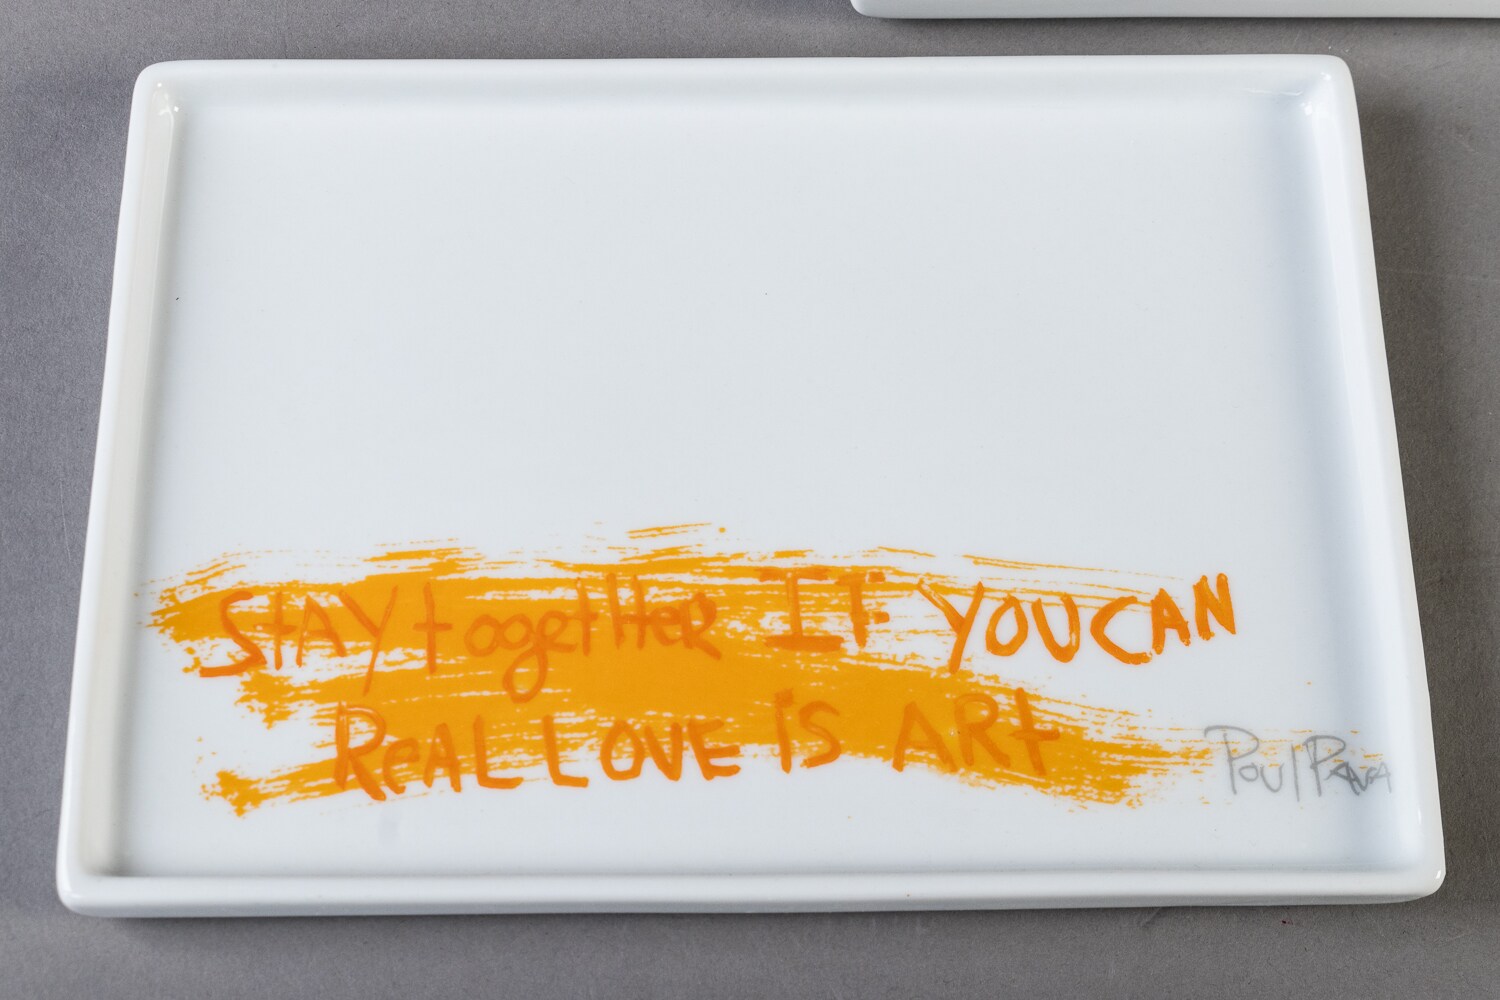 STAY togetHeR IF YOU CAN
ReAL LOVE IS ARt
Poul Pava